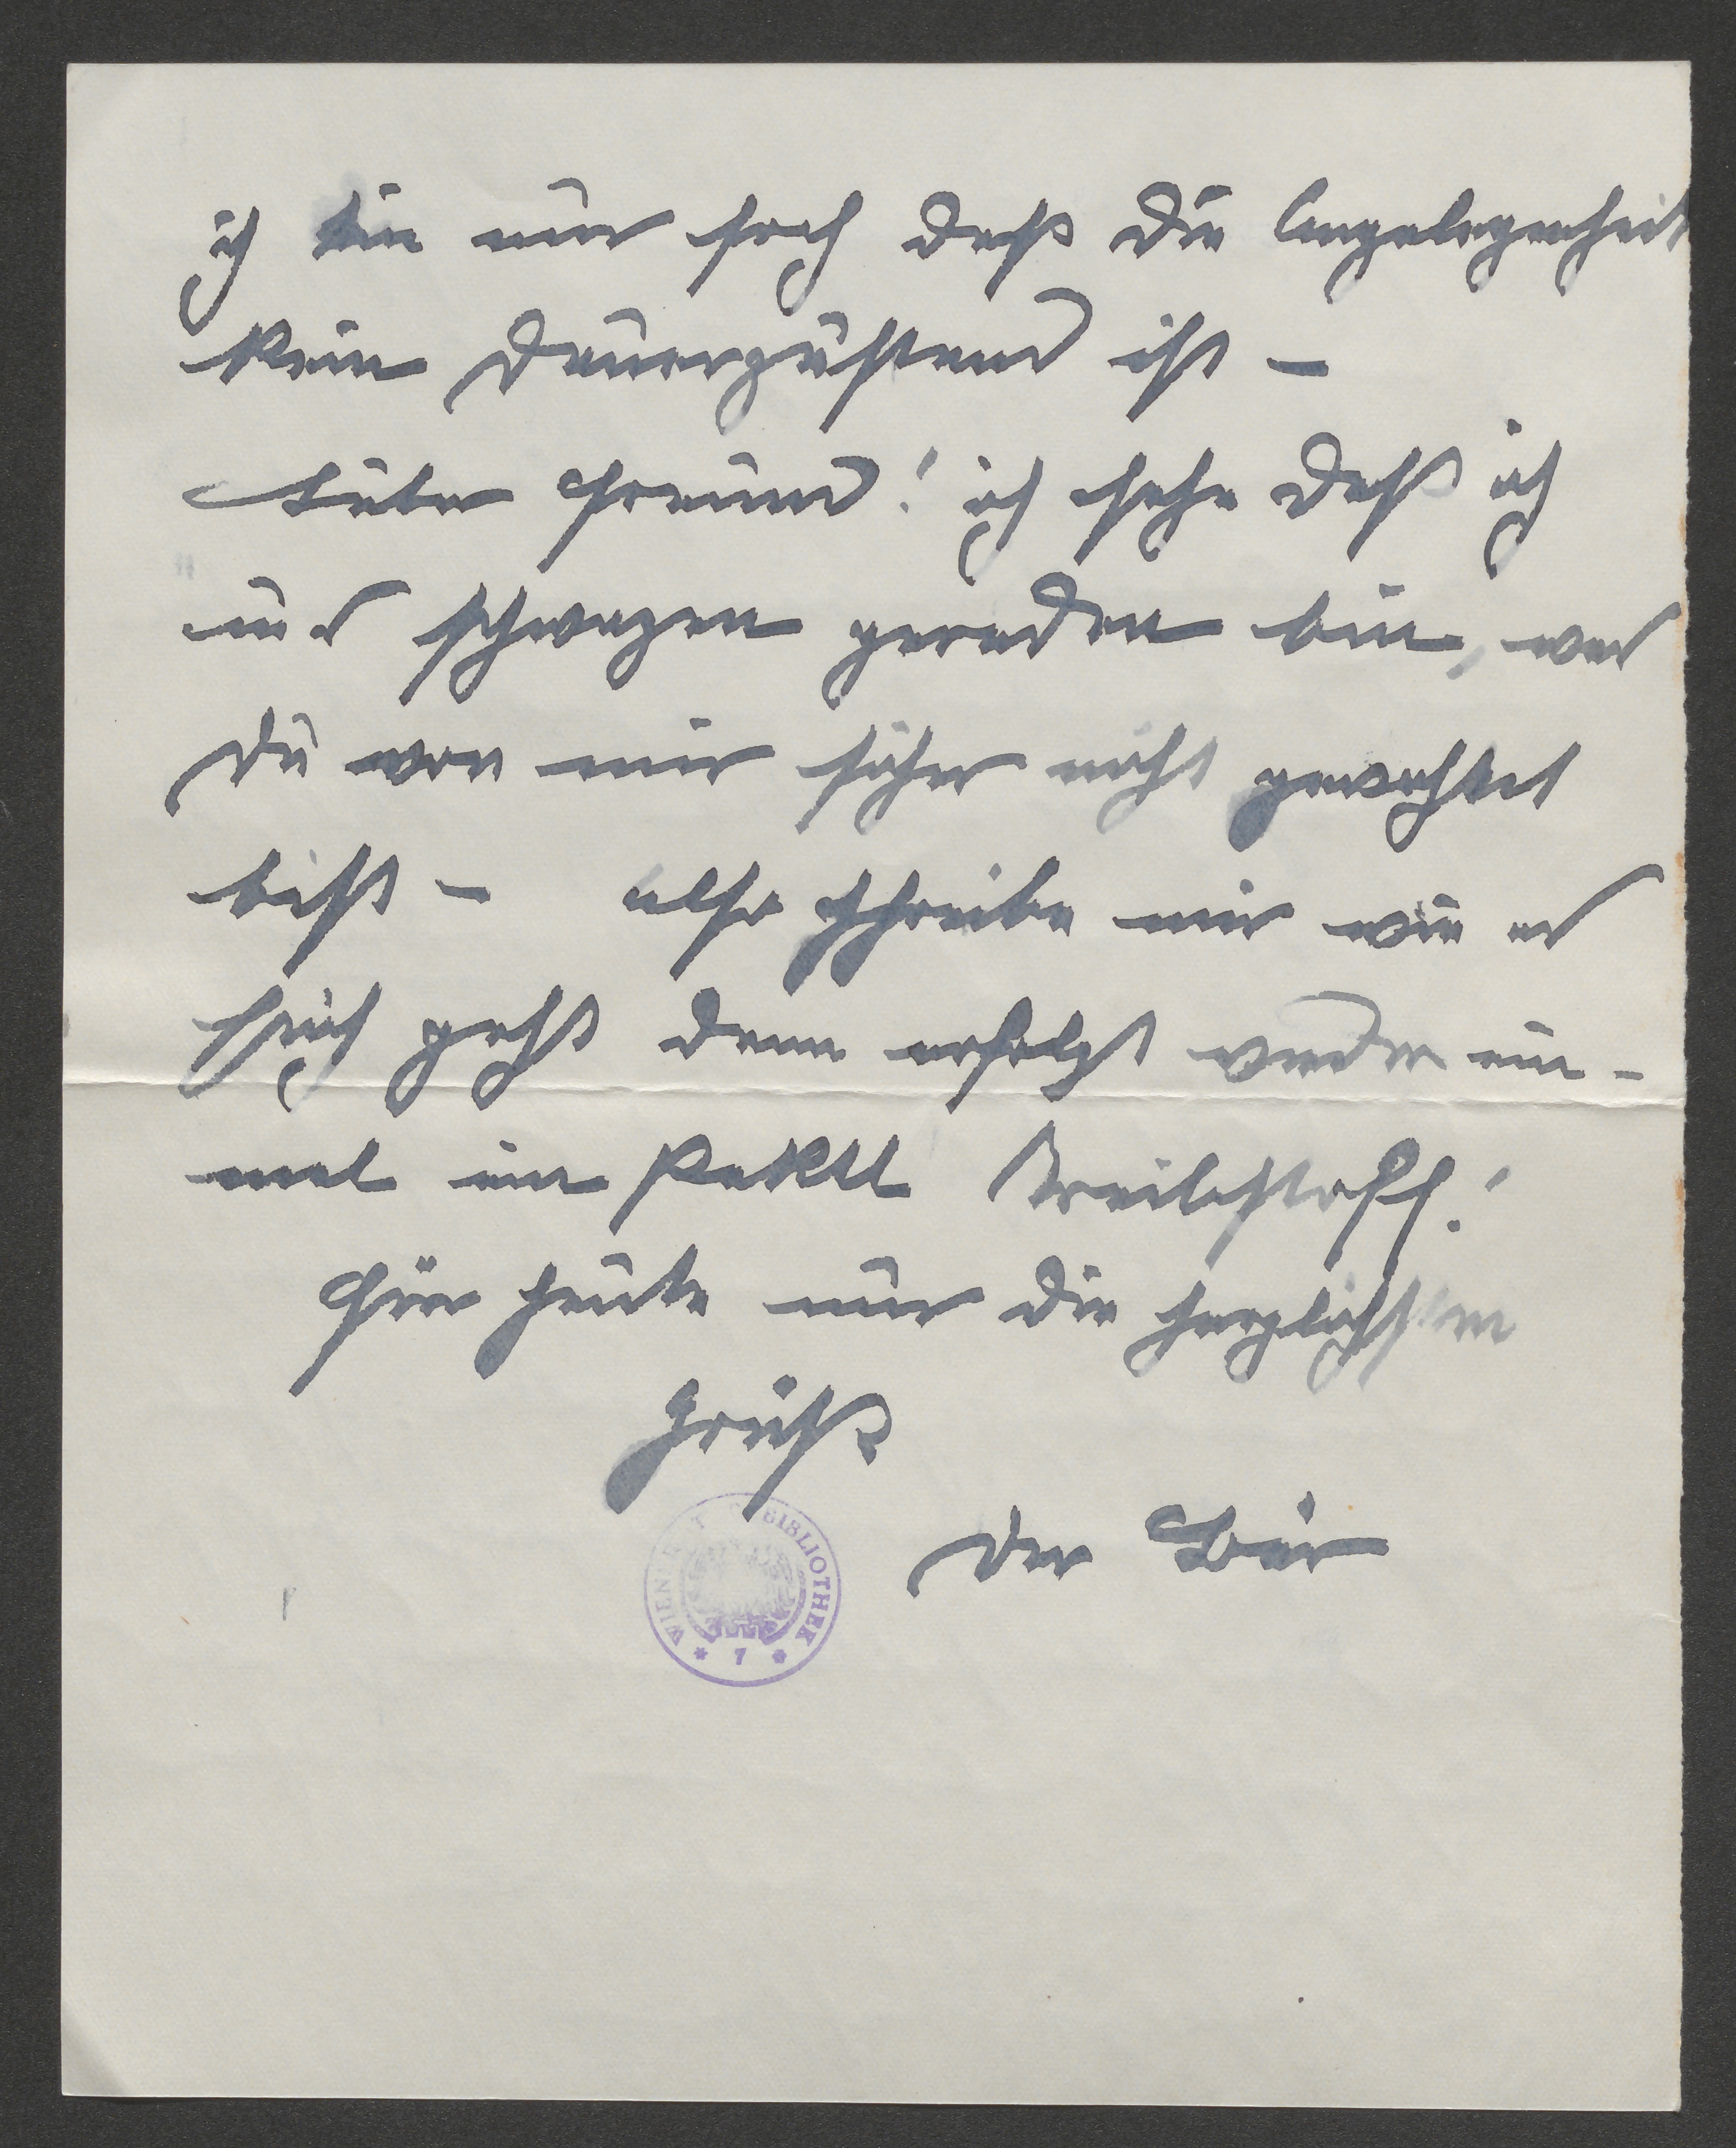 ich bin nur froh daß die Angelegenheit
kein Dauerzustand ist –
Lieber Freund! ich sehe daß ich
ins schwazen geraden bin, was
du von mir sicher nicht gewohnt
bist – also schreibe mir wie es
Euch geht dann erfolgt wieder ein-
mal ein Paktl Treibstoff!
für heute nur die herzlichsten
Grüße
der Bär
WIENER STADTBIBLIOTHEK
* 7 *